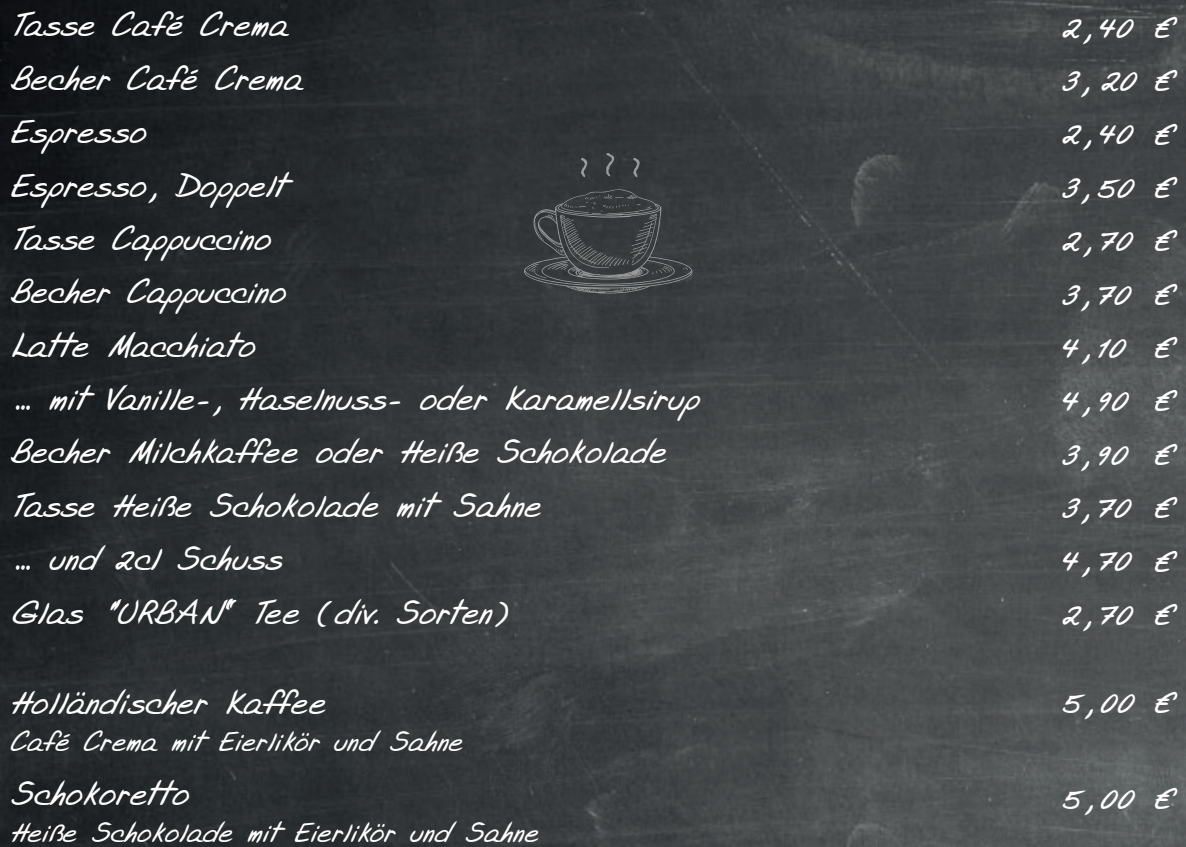 Tasse Café Crema 2,40 €
Becher Café Crema 3,20 €
Espresso 2,40 €
Espresso, Doppelt 3,50 €
Tasse Cappuccino 2,70 €
Becher Cappuccino 3,70 €
Latte Macchiato 4,10 €
... mit Vanille-, Haselnuss- oder Karamellsirup 4,90 €
Becher Milchkaffee oder Heiße Schokolade 3,90 €
Tasse Heiße Schokolade mit Sahne 3,70 €
... und 2cl Schuss 4,70 €
Glas "URBAN" Tee (div. Sorten) 2,70 €
Holländischer Kaffee 5,00 €
Café Crema mit Eierlikör und Sahne
Schokoretto 5,00 €
Heiße Schokolade mit Eierlikör und Sahne